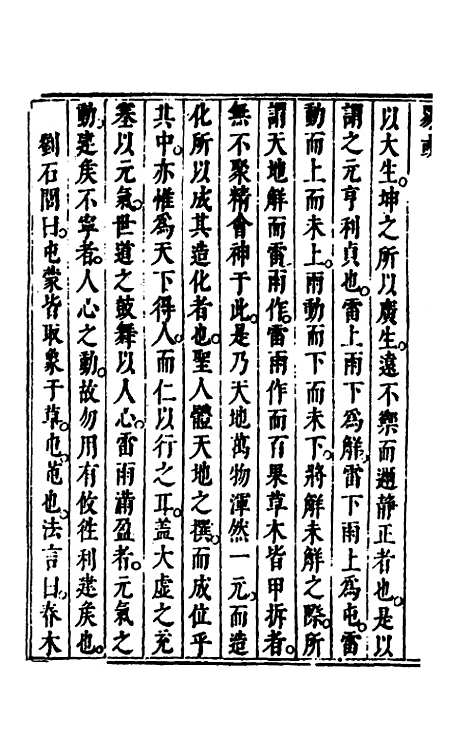 以大生。坤之所以廣生。遠不禦而邇靜正者也。是以
謂之元亨利貞也。雷上雨下爲解。雷下雨上爲屯。雷
動而上而未上。雨動而下而未下。將解未解之際。所
謂天地解而雷雨作。雷雨作而百果草木皆甲拆者。
無不聚精會神于此。是乃天地萬物渾然一元。而造
化所以成其造化者也。聖人體天地之撰。而成位乎
其中。亦惟爲天下得人。而仁以行之耳。蓋大虛之充
塞以元氣。世道之鼓舞以人心。雷雨滿盈者。元氣之
動。建矦不寧者。人心之動。故勿用有攸徃利建矦也。
劉石閭曰。屯蒙皆取象于草。屯。芚也。法言曰。春木